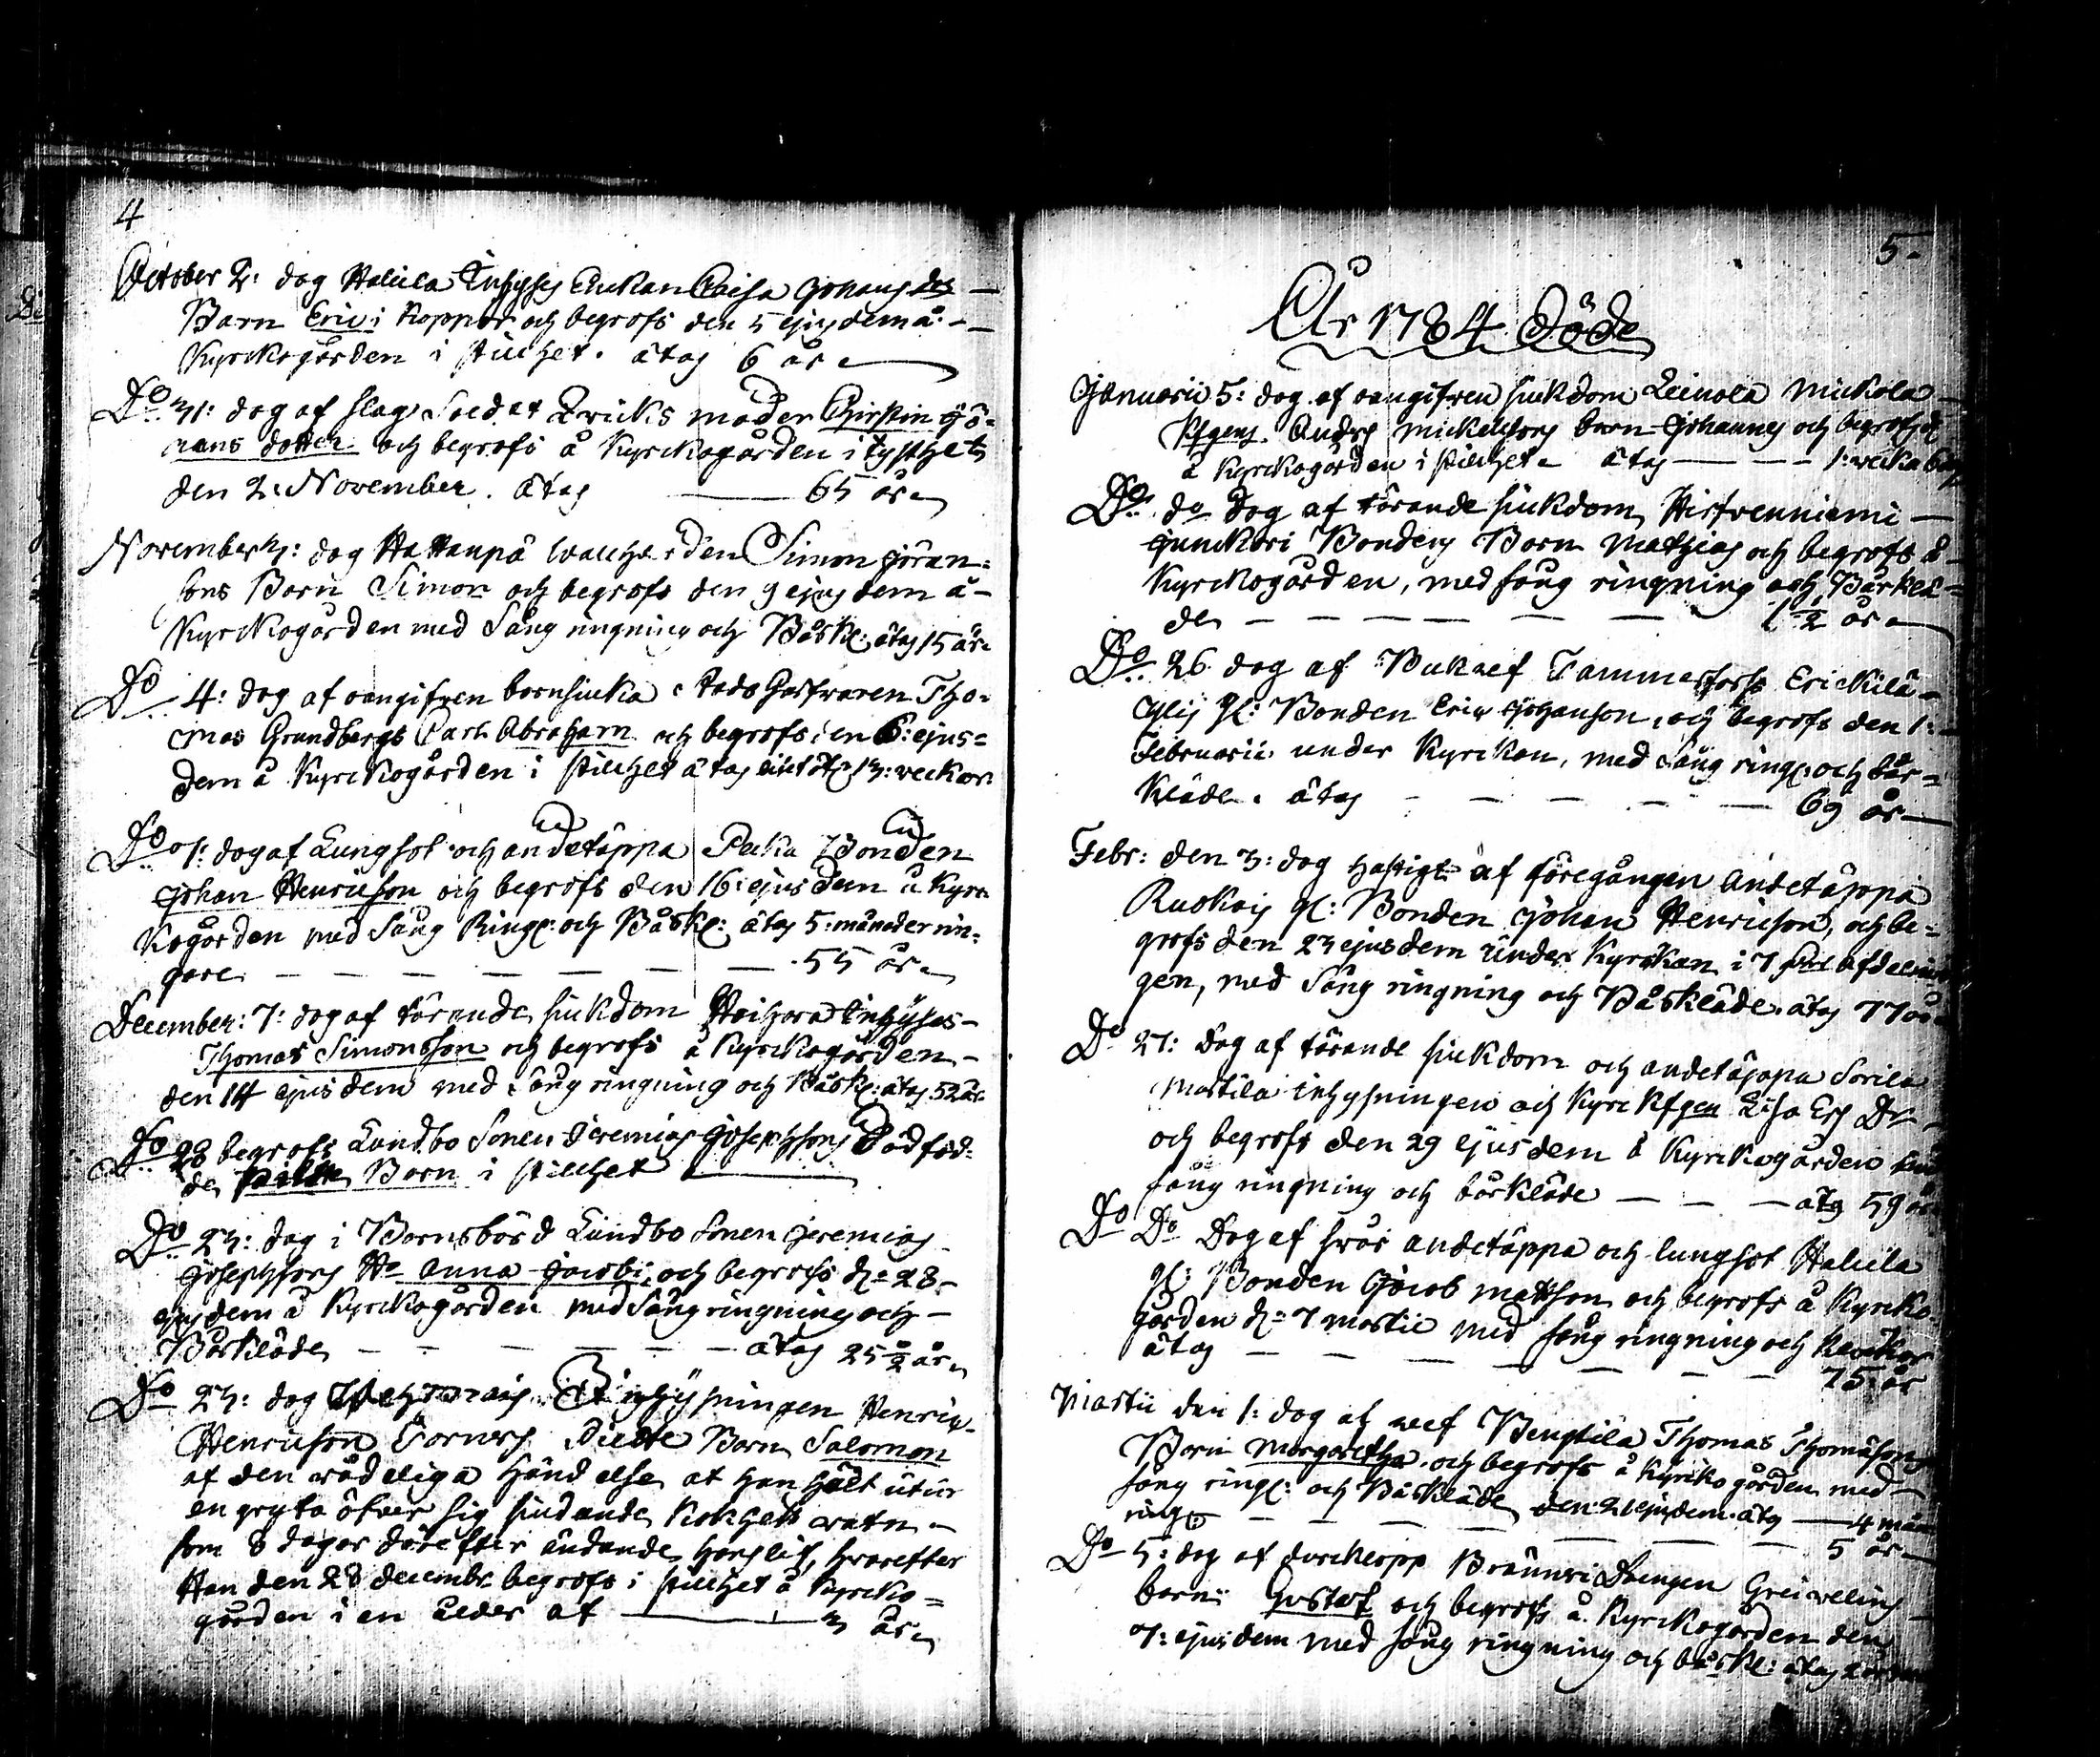 4
October 2: dag Halula Inhyses Enkan Caisa Johans Dos
Barn Eric i Koppor och begrofs den 5 ejusdem å
Kyrckogården i stillhet. ätag 6 år
Do 31: dag af slag Soldat Bricks moder Chirstin Jö=
rans dotter och begrofs å Kyrckogården i tysthet
den 2: November. ätag 65 år
November 3: dag Hattanpä Simon Göran=
sons Barn Simon och begrofs den 9 ejusdem å
Kyrckogården med Sång ringning och Bårkl: ätag 15 år
Do 4: dag af oangifven barnsiuka Gästwaren Tho=
mas Grundbergs Carl Abraham och begrofs den 6: ejus=
dem å Kyrckogården i stillhet ätag 13: veckor
Do 7: dag af Lungsot och andetäppa Bonden
Johan Henricson och begrofs den 16: ejusdem å Kyrc
kogården med Sång Ring: och Bårkl: ätag 5: månader min=
dare 55 år
December: 7: dag af tärande siukdom Haihara Inhyses
Thomas Simonsson och begrofs å Kyrckogården
den 14 ejusdem med Sång ringning och Bårkl: ätag 52 år
Do 28 begrofs Lundbo Sonen Jeremias Josephsons Dödföd=
de Barn i stillhet
Do 23: dag i Barnsbörd Lundbo Sonen Jeremias
Josephsons Ho Anna Jacobi, och begrofs d: 28
ejusdem å Kyrckogården med Sång ringning och
Bårkläde ätag 25 1/2 år
Do 23: dag inhysningen Henric
Henricson Törners Barn Salomon
af den wådeliga händelse at han hält utur
en gryta öfver sig siudande kokhett vatn
som 8 dagar därefter ändande hans lif, hvarefter
Han den 28 decembr begrofs i stillhet å Kyrcko=
gården i en ålder af 3 år
5
År 1784 Döde
Januarii 5: dag af oangifven siukdom Leinola Mickola
Anders Mickelsons barn Johannes och begrofs
å Kyrckogården i stillhet ätag 1: vecka 6
Do do Dag af tärande siukdom Hirfwenniemi
Junckari Bondens Barn Mathias och begrofs å
Kyrckogården, med sång ringning och Bårklä=
de 1 1/2 år
Do 26 dag af Bukref Tammerfors Erickilä
gl: Bonden Eric Johanson, och begrofs den 1:
Februarii under Kyrckan, med Sång ring: och bår=
kläde. ätag 69 år
Febr: den 3: dag hastigt af föregången Andetäppa
gl: Bonden Johan Henricson, och be=
grofs den 23 ejusdem under Kyrckan i 7 afdelnin
gen, med Sång ringning och Bårkläde ätag 77 år
Do 27: Dag af tärande siukdom och andetäppa Sorila
Martila inhysningen och Lisa Dr
och begrofs den 29 ejusdem å Kyrckogården
sång ringning och bårkläde ätg 59 år
Do Do Dag af svår andetäppa och lungsot Halula
gl: Bonden Jacob Mattson och begrofs å Kyrcko
gården d: 7 Martii med sång ringning och
ätag 75 år
Martii den 1: dag af ref Bengtilä Thomas Thomasons
Barn Margaretha. och begrofs å Kyrckogården med
sång ring: och Bårkläde den 21 ejusdem. ätg 4 mån
5 år
Do 5: dag af durchlopp Drengen Greiwelins
barn Gustaf och begrofs å Kyrckogården den
7: ejusdem med sång ringning och bårkl: ätag 2